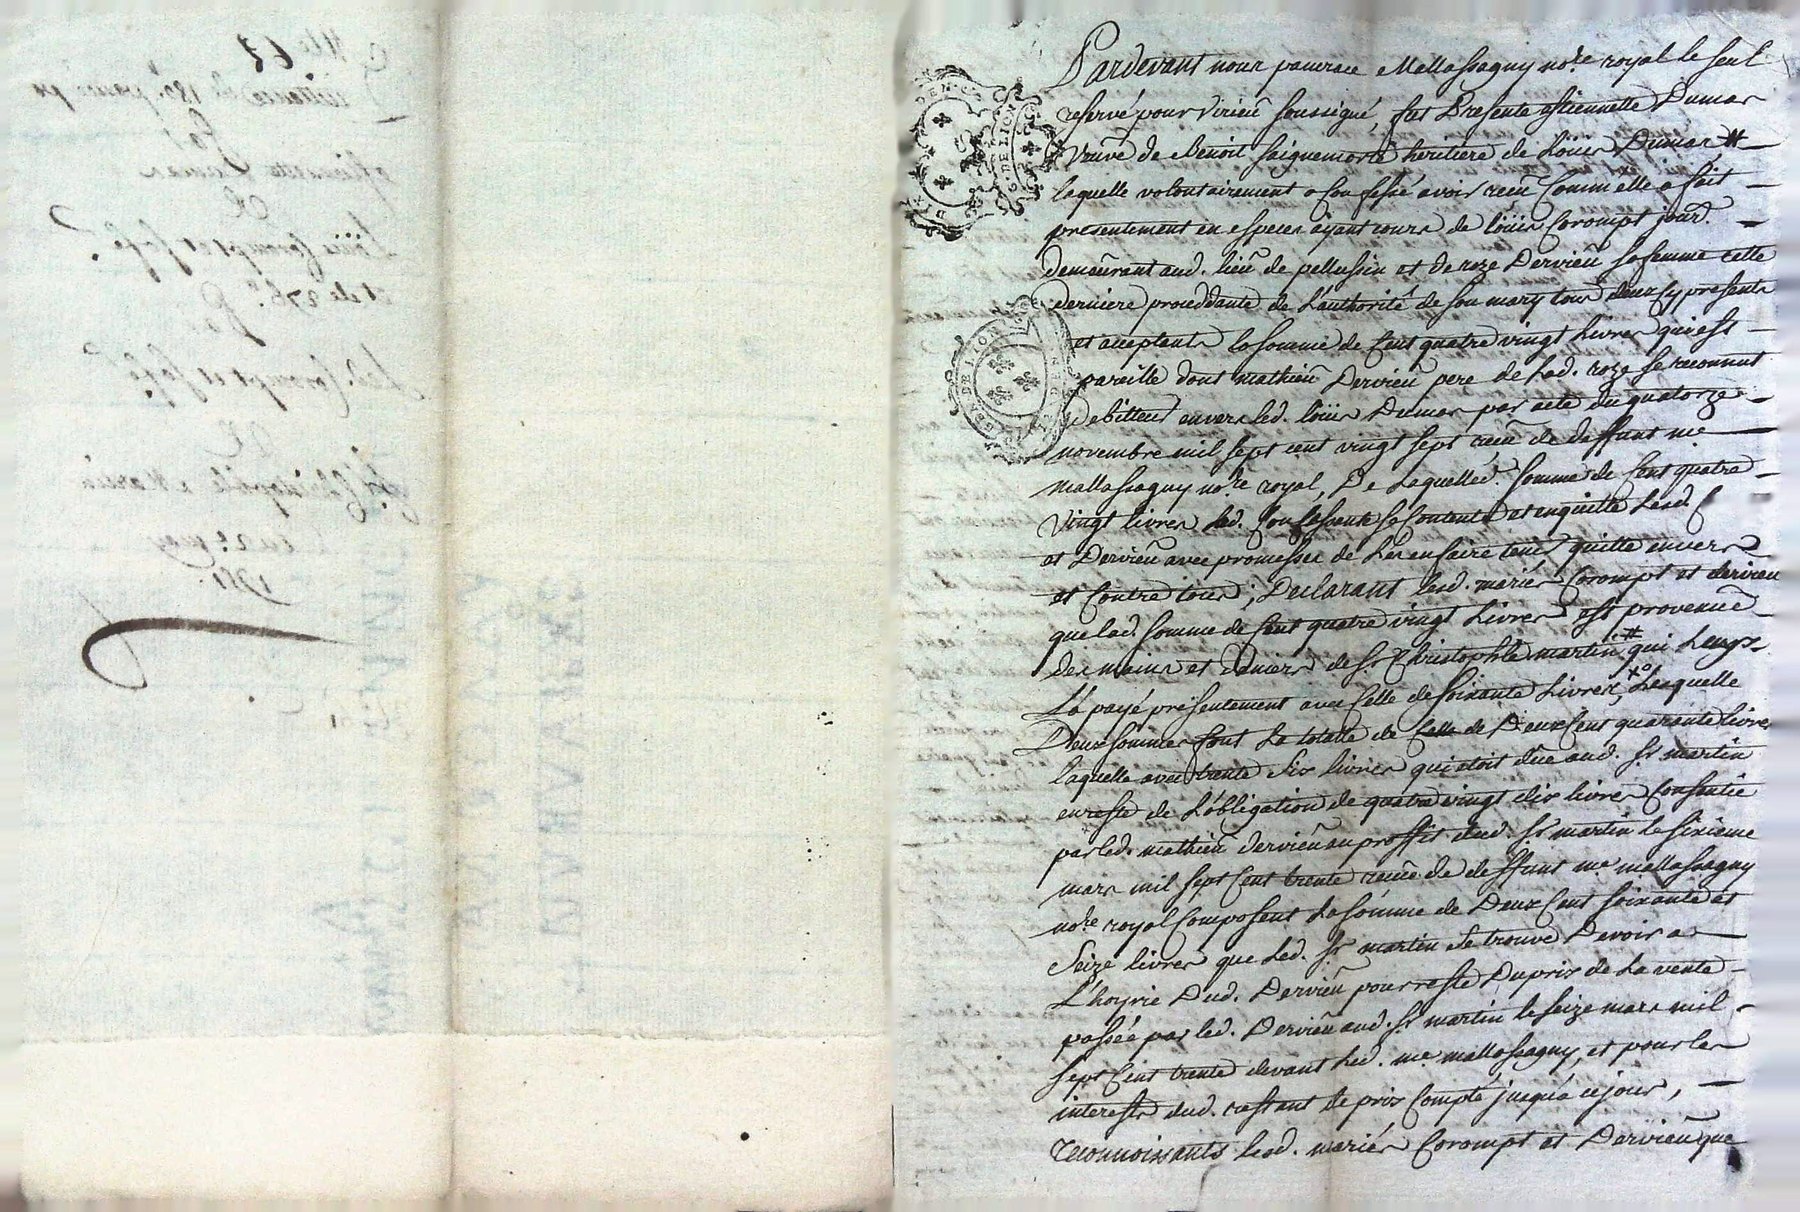 N° 62
quittance de 180# passée par
Par
estiennette Dumas
A
Loüis Corompt et sa fe
et de 276#
Par
Led. Corompt et sa fe
A
Sr Christophle Martin
Du 2e may
1751
Pardevant nous paucrace Mallassagny nore royal le seul
reservé pour Virieu soussigné, fut Presente estiennette Dumas
veuve de Benoit Saignemorte heritiere de Loüis Dumas #
laquelle volontairement a Confessé avoir receu Comm elle a fait
presentement en especes ayant cours de loüis Corompt jourd.
demeurant aud. lieu de pellussin et de roze Dervieu sa femme cette
derniere proceddante de l'authorité de son mary tous deux Cy presents
et acceptants la somme de Cent quatre vingt Livres qui est
pareille dont mathieu Dervieu pere de Lad. roze se reconnut
Debitteur envers led. loüis Dumas par acte du quatorze
novembre mil sept cent vingt sept receu de deffunt me
mallassagny nore royal, De Laquelled. Somme de Cent quatre
vingt livres Lad. Confessante se Contente et en quitte Lesd. C
et Dervieu avec promesses de Les en faire tenir quitte envers
et Contre tous; Declarant Lesd. mariés Corompt et dervieu
que lad. somme de Cent quatre vingt Livres est provenue
des mains et deniers de sr Christophle martin # qui Leurs
L'a payé présentement avec Celle de soixante Livres, Lesquelle
Deux sommes font La totalle de Celle de Deux Cent quarante livres
laquelle avec trente Six livres qui etoit düe aud. Sr martin
en reste de L'obligation de quatre vingt dix livres Consantie
par led. mathieu dervieu au proffit dud. Sr martin le sixieme
mars mil sept Cent trente receue de deffunt me mallassagny
nore royal Composent La somme de Deux Cent soixante et
Seize livres que Led. Sr martin se trouve Devoir a
L'hoyrie Dud. Dervieu pour reste Du prix de La vente
passée par led. Dervieu aud. Sr martin le seize mars mil
sept Cent trente devant Led. me mallassagny, et pour les
interests dud. restant de prix Compté jusqu'a ce jour,
reconnoissants Lesd. mariés Corompt et Dervieu que